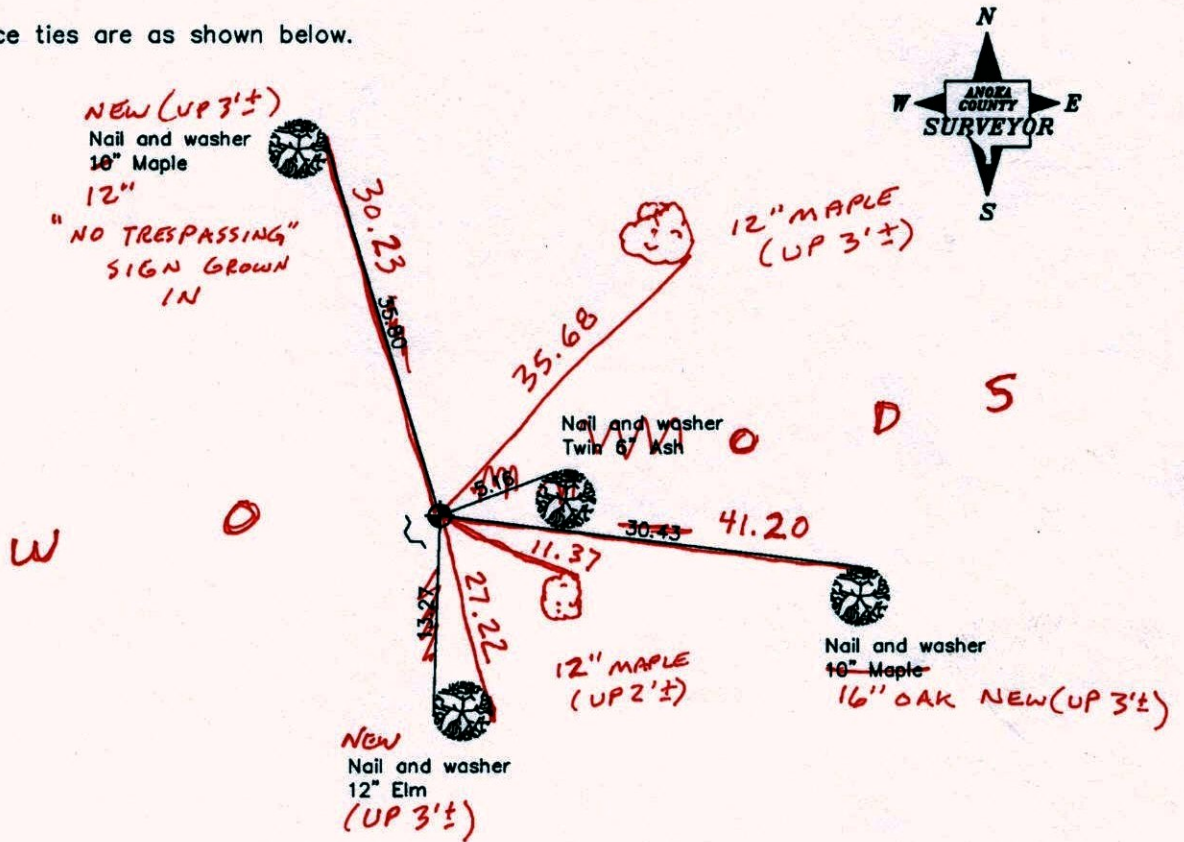 ce ties are as shown below.
N
W
ANOKA
COUNTY
E
SURVEYOR
S
NEW (UP 3'±)
Nail and washer
10" Maple
12"
"NO TRESPASSING"
SIGN GROWN
IN
30.23
35.80
12" MAPLE
(UP 3'±)
35.68
Nail and washer
Twin 6" Ash
5.16
W O O D S
30.43
41.20
11.37
13.27
27.22
12" MAPLE
(UP 2'±)
Nail and washer
10" Maple
16" OAK NEW (UP 3'±)
NEW
Nail and washer
12" Elm
(UP 3'±)